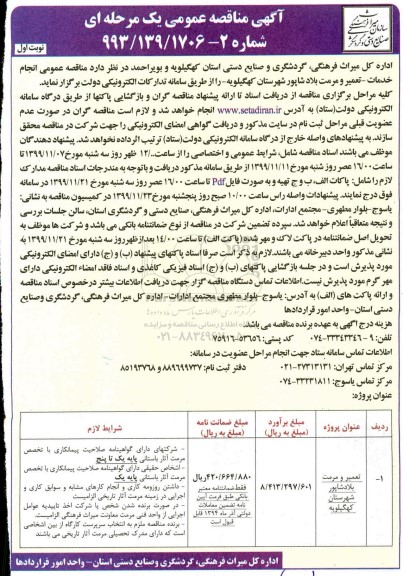 آگهی مناقصه عمومی یک مرحله ای
شماره ۲- ۹۹۳/۱۳۹/۱۷۰۶
نوبت اول
اداره کل میراث فرهنگی، گردشگری و صنایع دستی استان کهگیلویه و بویراحمد در نظر دارد مناقصه عمومی انجام
خدمات -تعمیر و مرمت بلادشاپور شهرستان کهگیلویه- را از طریق سامانه تدارکات الکترونیکی دولت برگزار نماید.
کلیه مراحل برگزاری مناقصه از دریافت اسناد تا ارائه پیشنهاد مناقصه گران و بازگشایی پاکتها از طریق درگاه سامانه
الکترونیکی دولت(ستاد) به آدرس www.setadiran.ir انجام خواهد شد و لازم است مناقصه گران در صورت عدم
عضویت قبلی مراحل ثبت نام در سایت مذکور و دریافت گواهی امضای الکترونیکی را جهت شرکت در مناقصه محقق
سازند. به پیشنهادهای واصله خارج از درگاه سامانه الکترونیکی دولت(ستاد) ترتیب اثر داده نخواهد شد. پیشنهاد دهندگان
موظف می باشند اسناد مناقصه شامل، شرایط عمومی و اختصاصی را از ساعت ۱۲/۰۰ ظهر روز سه شنبه مورخ ۱۱/۰۷/ ۱۳۹۹تا
ساعت ۱۶/۰۰ عصر روز شنبه مورخ ۱۳۹۹/۱۱/۱۱ از طریق سامانه مذکور دریافت و باتوجه به مندرجات اسناد مناقصه مدارک
لازم را شامل: پاکات الف، ب و ج تهیه و به صورت فایل Pdf تا ساعت ۱۶/۰۰ عصر روز سه شنبه مورخ ۱۳۹۹/۱۱/۲۱ در سامانه
فوق درج نمایند. پیشنهادات واصله راس ساعت ۱۰/۰۰ صبح روز پنجشنبه مورخ ۱۳۹۹/۱۱/۲۳ در کمیسیون مناقصه به نشانی:
یاسوج-بلوار مطهری- مجتمع ادارات، اداره کل میراث فرهنگی، صنایع دستی و گردشگری استان، سالن جلسات بررسی
و نتیجه متعاقباً اعلام خواهد شد. سپرده تضمین شرکت در مناقصه از نوع ضمانتنامه بانکی می باشد و شرکت ها موظف به
تحویل اصل ضمانتنامه در پاکت لاک و مهر شده (پاکت الف) تا ساعت ۱۴/۰۰ بعدازظهر روز سه شنبه مورخ ۱۳۹۹/۱۱/۲۱ به
نشانی مذکور واحد دبیرخانه می باشند. لازم به ذکر است صرفاً اسناد پاکتهای پیشنهاد (ب) و (ج) دارای امضای الکترونیکی
مورد پذیرش است و در جلسه بازگشایی پاکتهای (ب) و (ج) اسناد فیزیکی کاغذی و اسناد فاقد امضاء الکترونیکی دارای
مهر گرم مورد پذیرش نیست. اطلاعات تماس دستگاه مناقصه گزار جهت دریافت اطلاعات بیشتر در خصوص اسناد مناقصه
و ارائه پاکت های (الف) به آدرس: یاسوج-بلوار مطهری مجتمع ادارات - اداره کل میراث فرهنگی، گردشگری و صنایع
دستی استان- واحد امور قراردادها
هزینه درج آگهی به عهده برنده مناقصه می باشد.
تلفن: ۹-۰۷۴-۳۳۳۴۳۳۴۶ کد پستی: ۵۳۶۵۶-۷۵۹۱۶
اطلاعات تماس سامانه ستاد جهت انجام مراحل عضویت در سامانه:
مرکز تماس تهران: ۲۷۳۱۳۱۳۱-۰۲۱ دفتر ثبت نام: ۸۸۹۶۹۷۳۷ و ۸۵۱۹۳۷۶۸
مرکز تماس یاسوج: ۳۳۲۳۱۸۱۱-۰۷۴
عنوان پروژه:
ردیف عنوان پروژه مبلغ برآورد (مبلغ به ریال) مبلغ ضمانت نامه (مبلغ به ریال) شرایط لازم
۱- تعمیر و مرمت بلادشاپور شهرستان کهگیلویه
۸/۴۱۳/۲۹۷/۶۰۱
۴۲۰/۶۶۴/۸۸۰ریال
فقط ضمانتنامه معتبر بانکی طبق فرمت آیین نامه تضمین معاملات دولتی آذر ماه ۱۳۹۴ قابل قبول است
- شرکتهای دارای گواهینامه صلاحیت پیمانکاری با تخصص مرمت آثار باستانی پایه یک تا پنج
- اشخاص حقیقی دارای گواهینامه صلاحیت پیمانکاری با تخصص مرمت آثار باستانی پایه یک
- داشتن رزومه کاری و انجام کارهای مشابه و سوابق کاری و اجرایی در زمینه مرمت آثار تاریخی الزامیست
- در صورت برنده شدن شخص یا شرکت اخذ تاییدیه عوامل اجرایی از واحد فنی مرمت معاونت میراث فرهنگی الزامیست.
- برنده مناقصه ملزم به انتخاب سرپرست کارگاه از بین اشخاصی است که دارای مدرک تحصیلی مرمت آثار تاریخی می باشند
اداره کل میراث فرهنگی، گردشگری و صنایع دستی استان- واحد امور قراردادها